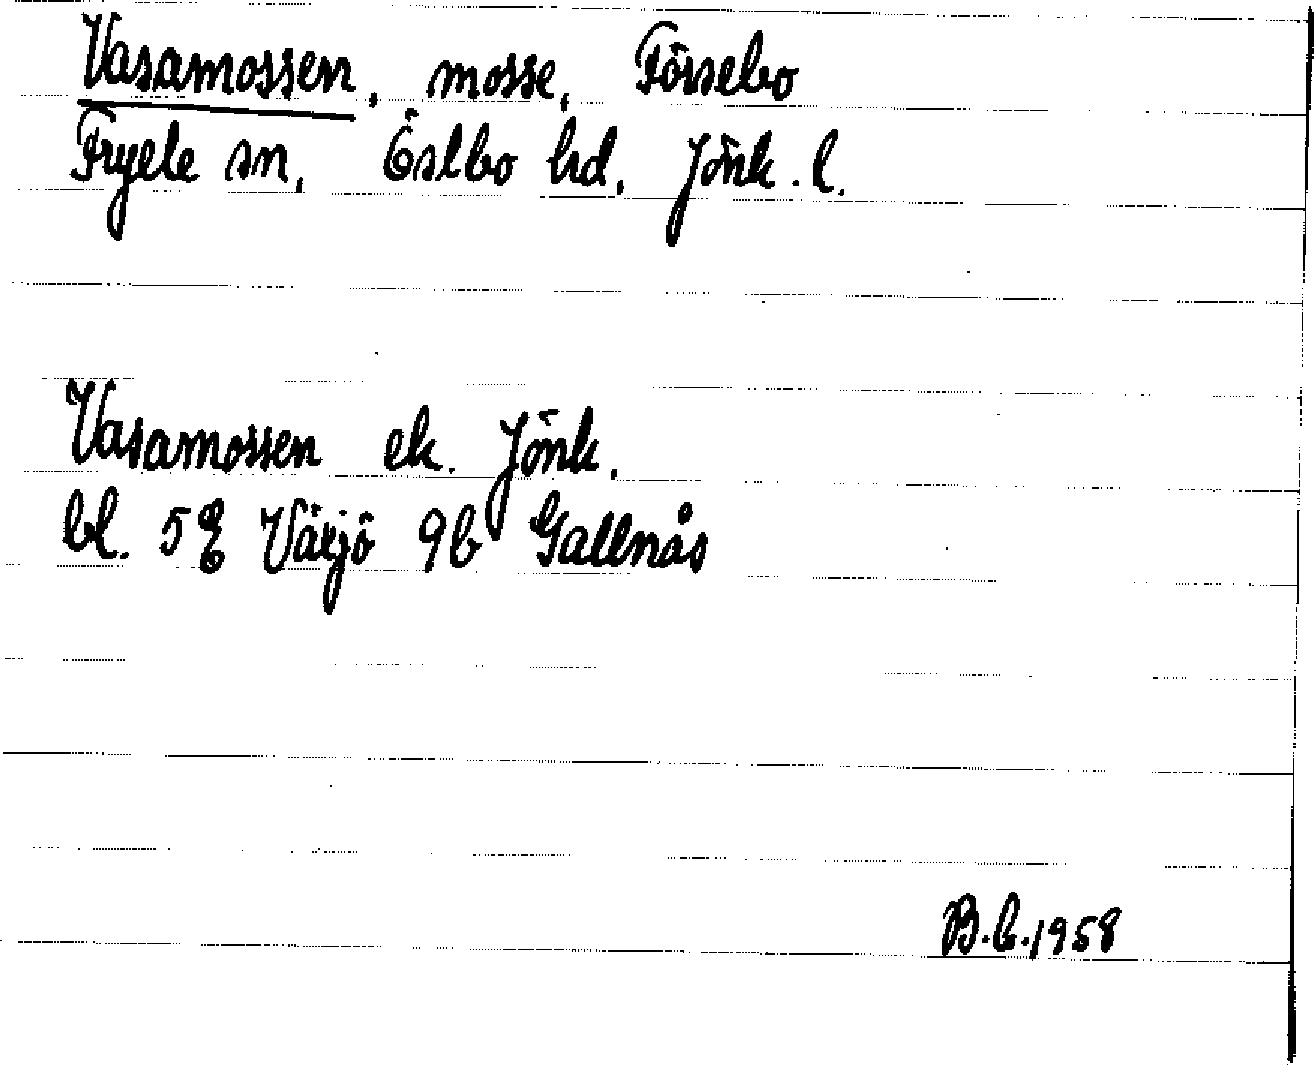 Vasamossen, mosse, Förssebo
Fryele sn, Östbo hd, Jönk. l.
Vasamossen ek. Jönk.
bl. 5E Växjö 9b Gällnås
B.E. 1958